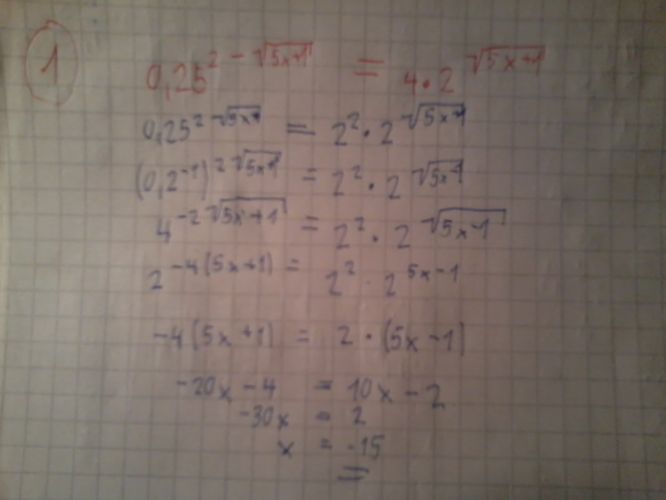 1
0,25^{2-\sqrt{5x+1}} = 4 \cdot 2^{\sqrt{5x+1}}
0,25^{2\sqrt{5x+1}} = 2^2 \cdot 2^{\sqrt{5x-1}}
(0,2^{-1})^{2\sqrt{5x+1}} = 2^2 \cdot 2^{\sqrt{5x-1}}
4^{-2\sqrt{5x+1}} = 2^2 \cdot 2^{\sqrt{5x-1}}
2^{-4(5x+1)} = 2^2 \cdot 2^{5x-1}
-4(5x+1) = 2 \cdot (5x-1)
-20x - 4 = 10x - 2
-30x = 2
x = -15